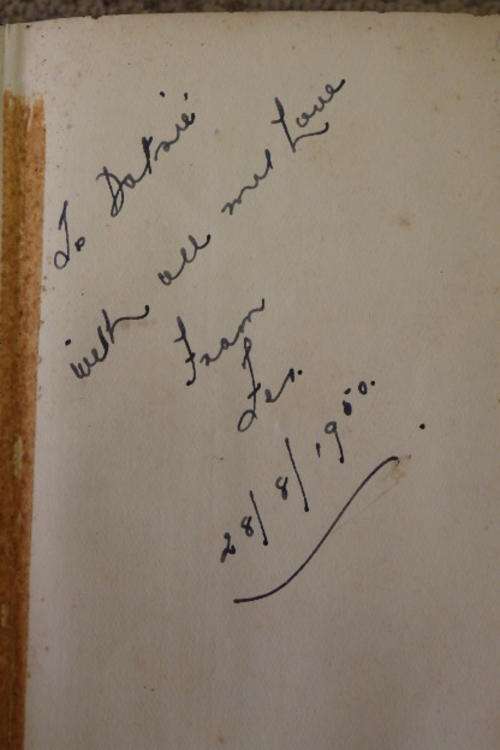 To
with all my Love
From
Les.
28/8/1950.